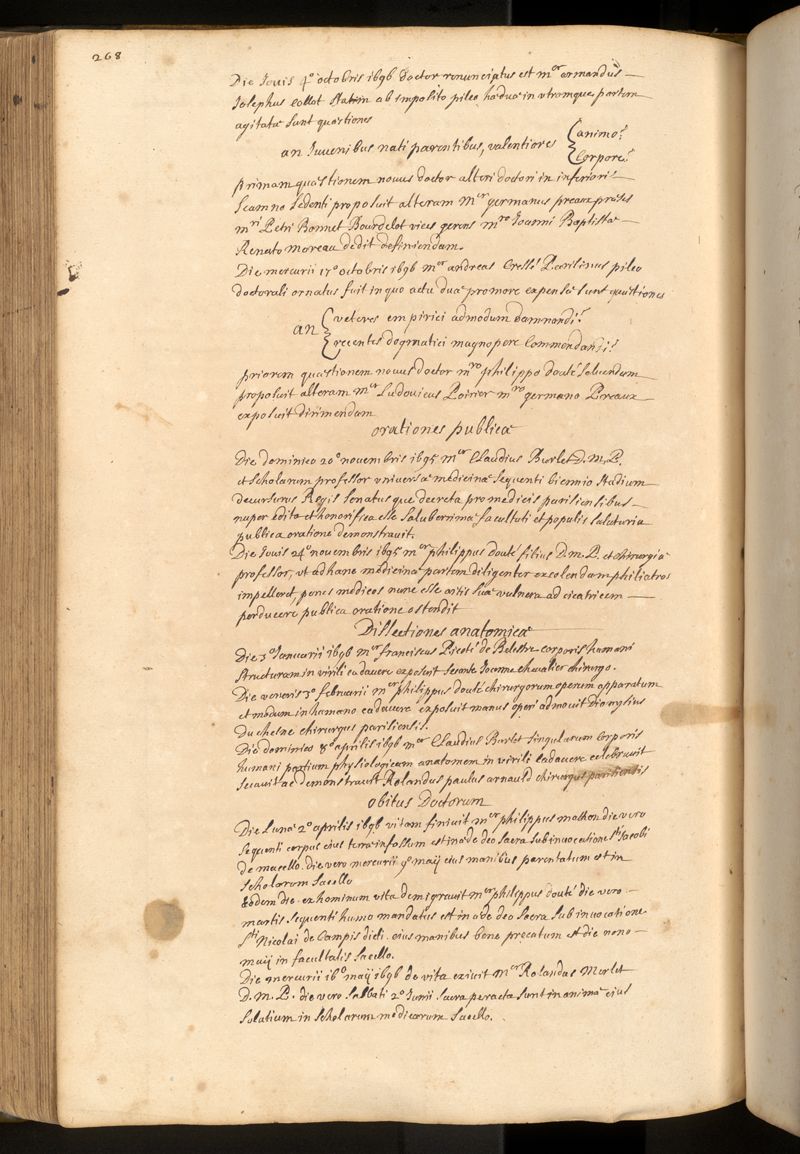 268
Die Jouis 4º octobris 1696 doctor renunciatus est mer armandus
Josephus collot statim ab imposito pileo hæ duæ in vtramque partem
agitatæ sunt quæstiones
an Juuenibus nati parentibus, valentiores { animo?
Corpore?
primam quæstionem nouus doctor alteri doctori in inferiori
scamno sedenti proposuit alteram mer germanus preaux præses
mri Petri Bonnet Bourdelot vices gerens mro Joanni Baptistæ
Renato moreau dedit definiendam.
Die mercurii 17º octobris 1696 mer andreas Cressé Parisinus pileo
doctorali ornatus fuit in quo actu duæ promore expensæ sunt quæstiones
an { veteres empirici admodum damnandi?
recentes dogmatici magnopere Commendandi?
priorem quæstionem nouus doctor mro philippo douté soluendam
proposuit alteram mer Ludouicus Poirier mro germano Preaux
exposuit dirimendam
orationes publicæ
Die dominico 20º nouembris 1695 mer Claudius Burlet D. M. P.
et scholarum professor vniuersæ medicinæ sequenti biennio stadium
decursurus Regis senatusque decreta pro medicis parisiensibus
nuper edita et honorifica esse saluberrimæ facultati et populis salutaria
publica oratione demonstrauit.
Die Jouis 24º nouembris 1695 mer philippus douté filius D. m. P. et chirurgiæ
professor, vt ad hanc medicinæ partem diligenter excolendam philiatros
impelleret, penes medicos nunc esse artis suæ vulnera ad cicatricem
perducere publica oratione ostendit
Dissectiones anatomicæ
Die 3º Januarii 1696 mer franciscus Picoté de Belestre corporis humani
structuram in virili cadauere exposuit secante Joanne cheualier chirurgo.
Die veneris 3º februarii mer philippus douté chirurgorum operum apparatum
et modum in humano cadauere exposuit manus operi admouit Dionysius
Duchesne chirurgus parisiensis.
Die dominico 8º aprilis 1696 mer Claudius Burlet singularum Corporis
humani partium physiologicam anatomem in virili cadauere celebrauit
secauit ac demonstrauit Rolandus paulus arnauld chirurgus parisiensis
obitus Doctorum
Die Lunæ 2º aprilis 1696 vitam finiuit mer philippus mathon die vero
sequenti corpus eius terra infossum est in æde deo sacra sub inuocatione sti Jacobi
de macello. die vero mercurii 9º maij eius manibus parentatum est in
scholarum sacello
Eodem die ex hominum vita demigrauit mer philippus douté die vero
martis sequenti humo mandatus est in æde deo sacra sub inuocatione
sti Nicolai de Campis dicti. eius manibus bene precatum est die nono
maij in facultatis sacello.
Die mercurii 16º maij 1696 de vita exiuit mer Rolandus Merlet
D. M. P. die vero sabbati 2º Junii sacra peracta sunt in animæ eius
solatium in scholarum medicorum sacello.